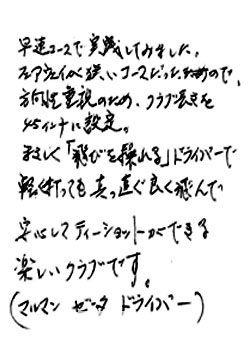 早速コースで実践してみました。
フェアウェイが狭いコースだったためので、
方向性重視のため、クラブ長さを
45インチに設定。
まさしく「飛びを操れる」ドライバーで
軽く打っても真っ直ぐ良く飛んで
安心してティーショットができる
楽しいクラブです。
(マルマン ゼータ ドライバー)